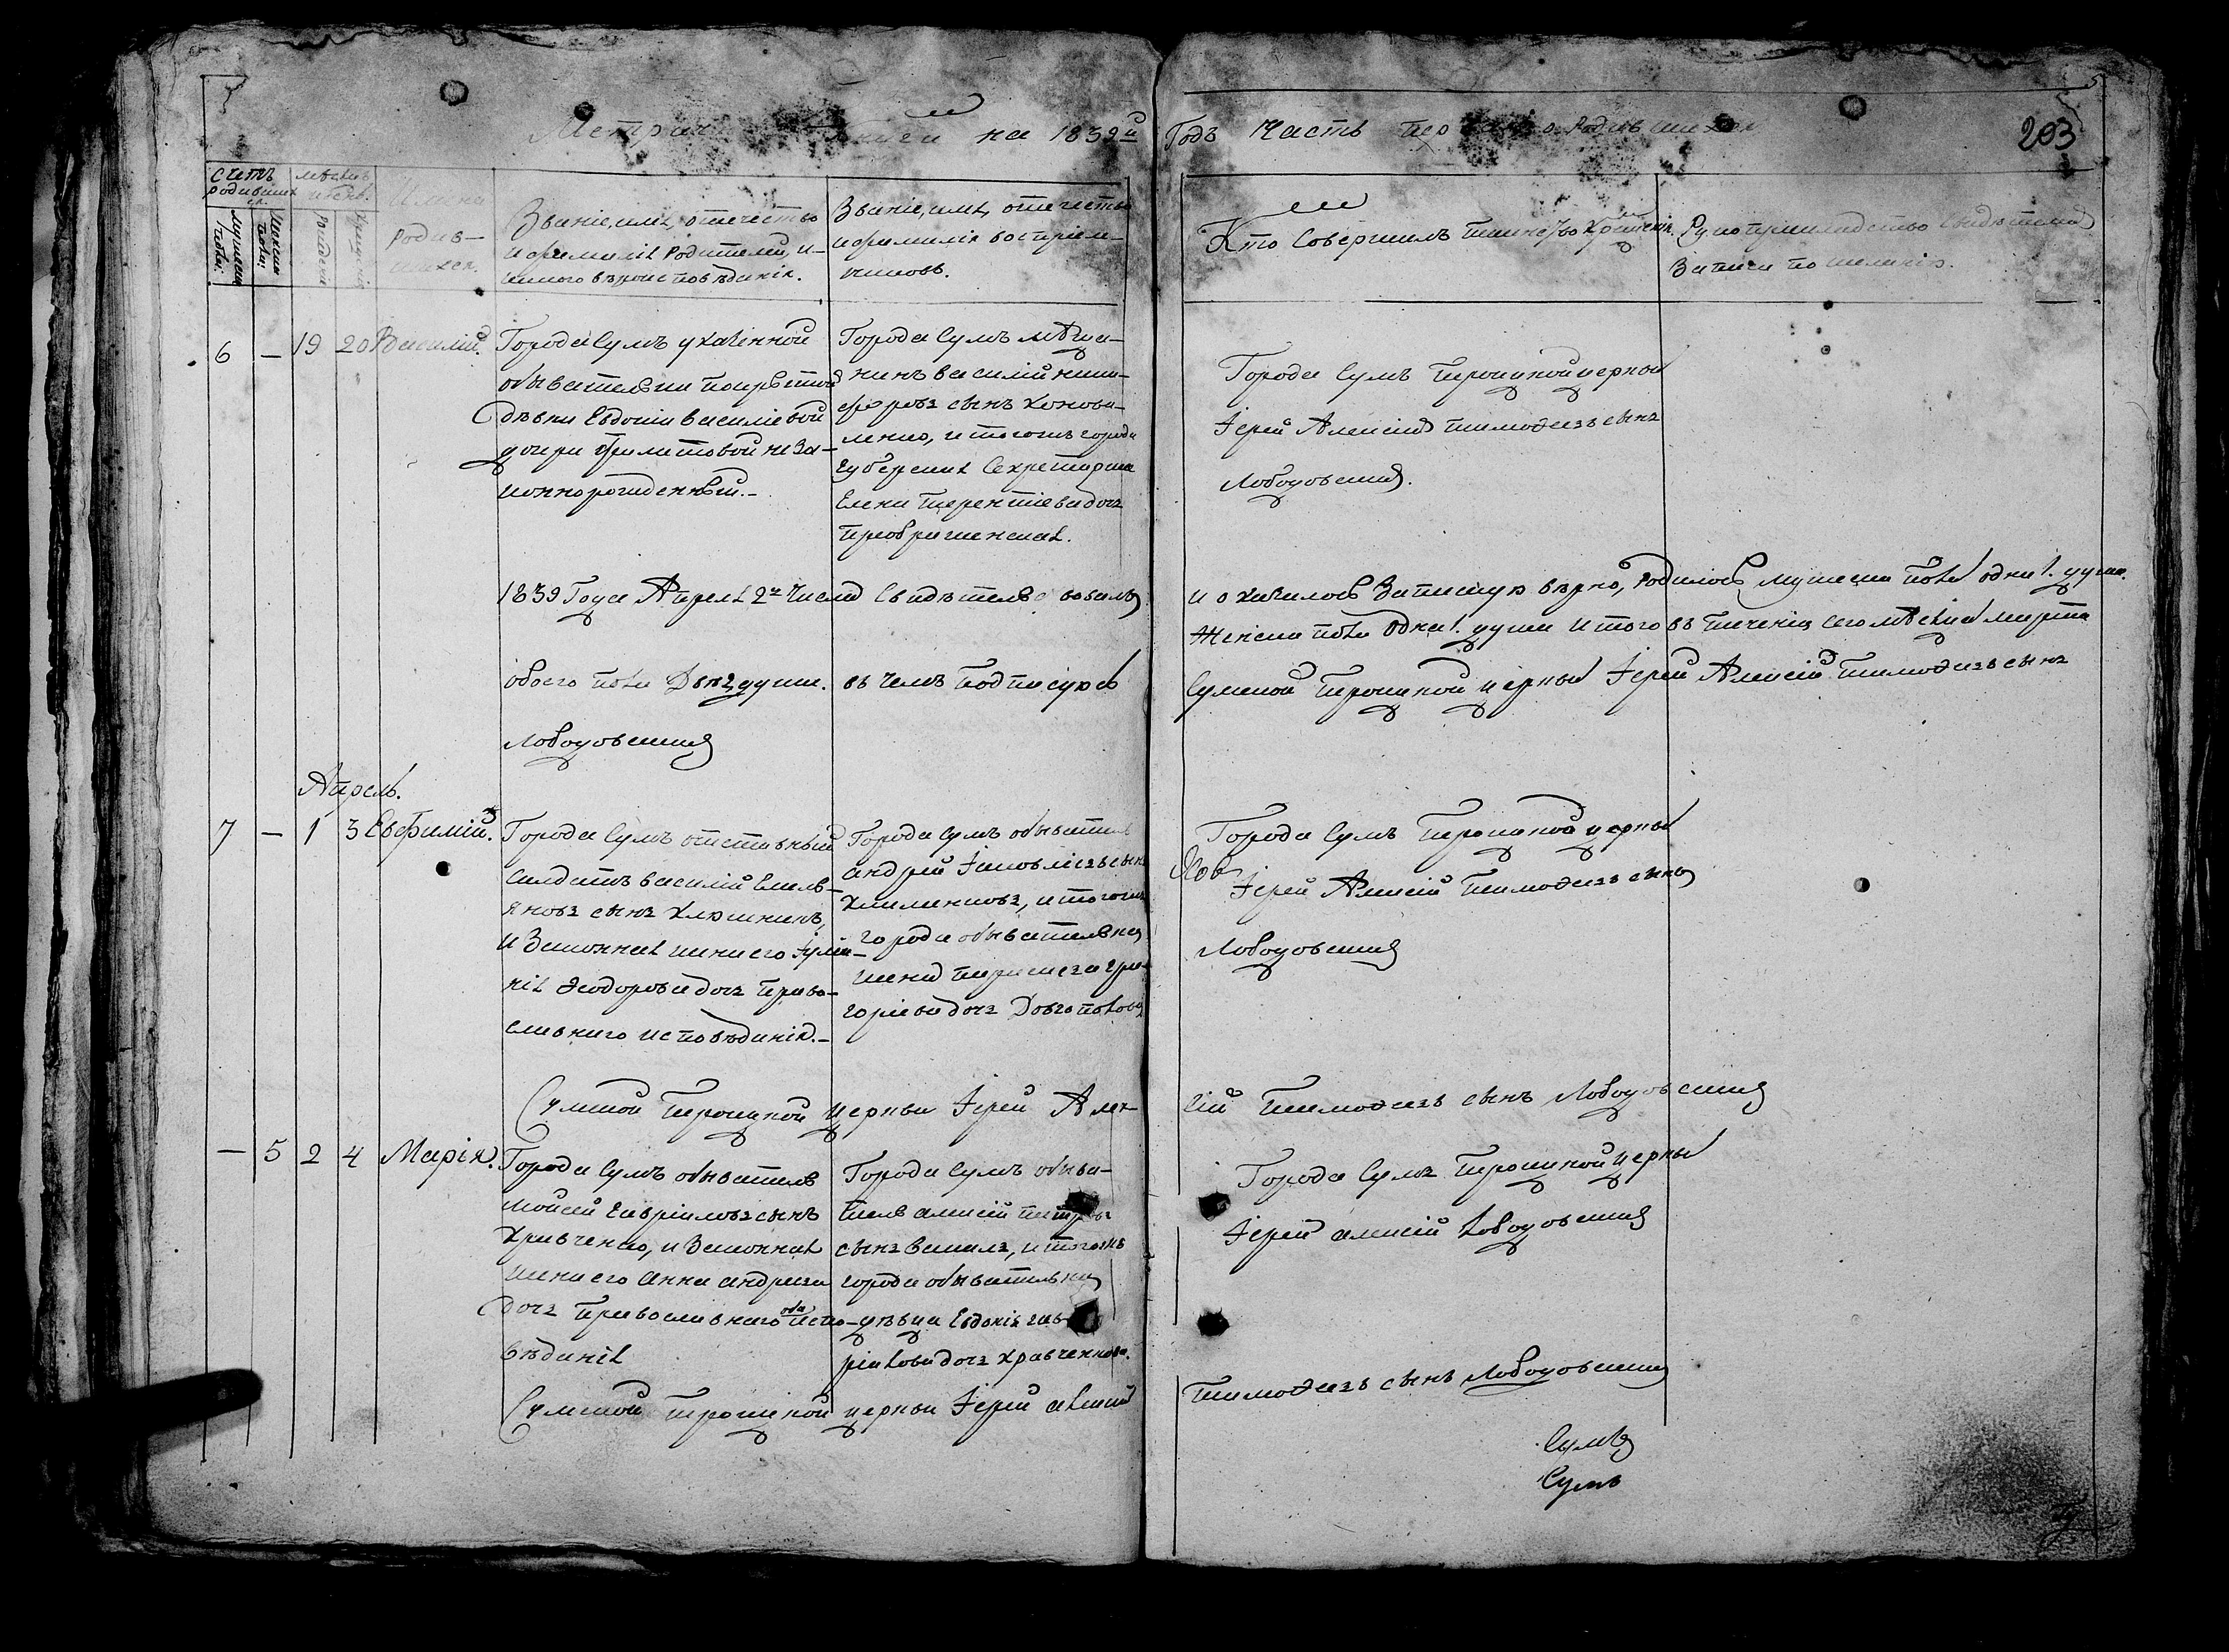 Метрич книги на 1839й Годъ Часть первая о родившихся
203
счетъ родившихся
Мужеска пола
Женска пола
мѣсяцъ и день
Рожденія
Крещенія
Имена
родив-
шихся.
Званіе, имя, отечество
и фамилія Родителей, и
какого вѣроисповѣданія.
Званіе, имя, отечество
и фамилія воспріем-
никовъ.
Кто совершилъ таинство крещенія.
Рукоприкладство свидѣтелей
Записи по желанію.
6 — 19 20 Василій.
Города Сумъ указенной
обывательки покрытой
дѣвки Евдокіи Василіевой
дочери Филиповой неза-
коннорожденный.-
Города Сумъ мѣща-
нинъ Василій Ники-
форовъ сынъ Конова-
ленко, и тогожъ города
Губернская Секретарша
Елена Терентіева дочь
Преображенская.
Города Сумъ Троицкой церкви
Іерей Алексій Тимофеевъ сынъ
Лободовскій.
1839 Года Апреля 2го числа Свидѣтельствовалъ
и оказалось Запискую вѣрно, родилось мужеска пола одна 1. душа.
Женска пола одна 1. душа итого въ теченіи сего мѣсяца марта
обоего пола Двѣ души. въ чемъ подписуюсь
Сумской Троицкой церкви Іерей Алексій Тимофеевъ сынъ
Лободовскій
Апрель.
7 — 1 3 Евфимій.
Города Сумъ отставный
салдатъ Василій Емель-
яновъ сынъ Клюшникъ,
и Законная жена его Іулiа-
нія Феодорова дочь право-
славнаго исповѣданія.-
Города Сумъ обыватель
Андрей Іаковлевъ сынъ
Клименковъ, и тогожъ
города обывателька
жена Параскева Гри-
горіева дочь Довгополова
Города Сумъ Троицкой церкви
Лоб
Іерей Алексій Тимофеевъ сынъ
Лободовскій
Сумской Троицкой церкви Іерей Алек-
сій Тимофеевъ сынъ Лободовскій
— 5 2 4 Марія.
Города Сумъ обыватель
Мойсей Гавріиловъ сынъ
Кравченко, и Законная
жена его Анна Андреева
дочь православнаго оба испо-
вѣданія
Города Сумъ обыва-
тель Алексій Петровъ
сынъ и тогожъ
города обывателька
дѣвца Евдокія Гав-
ріилова дочь Кравченкова.
Города Сумъ Троицкой церкви
Іерей Алексій Лободовскій
Сумской Троицкой церкви Іерей Алексій
Тимофеевъ сынъ Лободовскій
Сумъ
Сумъ